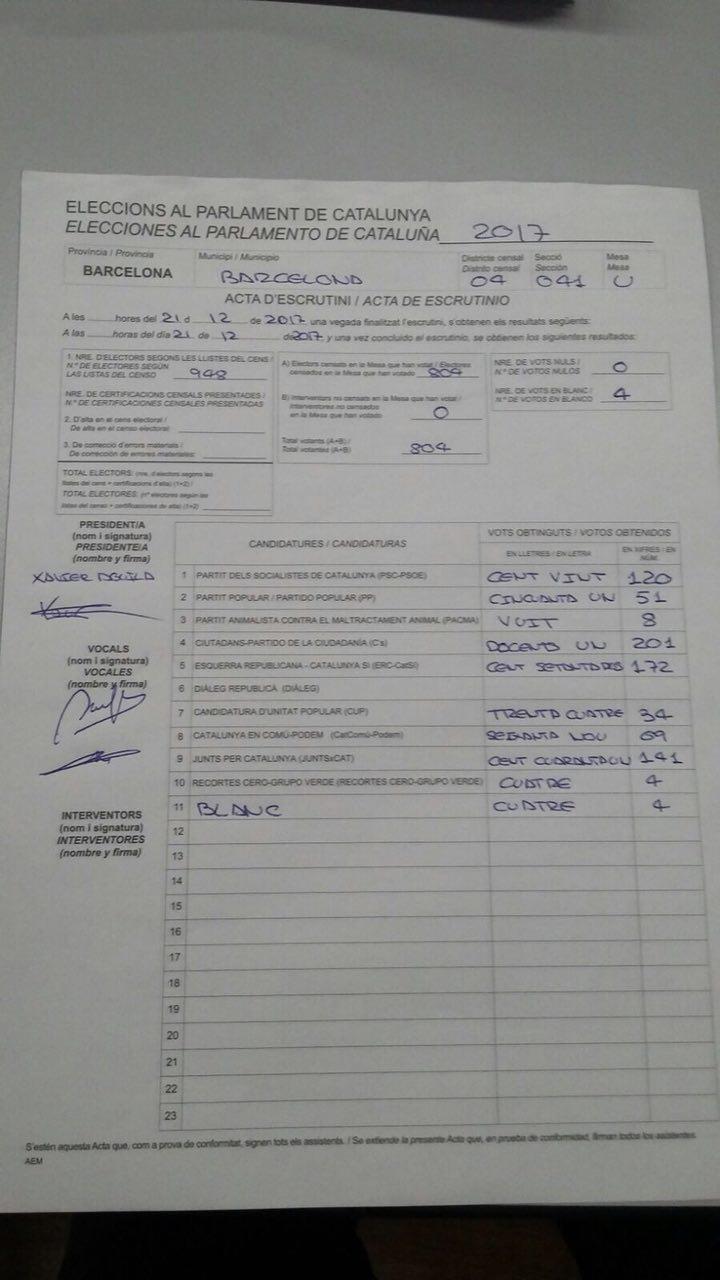 ELECCIONS AL PARLAMENT DE CATALUNYA
ELECCIONES AL PARLAMENTO DE CATALUÑA 2017
Província / Provincia Municipi / Municipio Districte censal Secció Mesa
Distrito censal Sección Mesa
BARCELONA BARCELONA 04 041 U
ACTA D'ESCRUTINI / ACTA DE ESCRUTINIO
A les hores del 21 d 12 de 2017 una vegada finalitzat l'escrutini, s'obtenen els resultats següents:
A las horas del día 21 de 12 de 2017 y una vez concluido el escrutinio, se obtienen los siguientes resultados:
1. NRE. D'ELECTORS SEGONS LES LLISTES DEL CENS /
N.º DE ELECTORES SEGÚN
LAS LISTAS DEL CENSO 948
NRE. DE CERTIFICACIONS CENSALS PRESENTADES /
N.º DE CERTIFICACIONES CENSALES PRESENTADAS
2. D'alta en el cens electoral /
De alta en el censo electoral:
3. De correcció d'errors materials /
De corrección de errores materiales:
TOTAL ELECTORS: (nre. d'electors segons les
llistes del cens + certificacions d'alta) (1+2) /
TOTAL ELECTORES: (nº electores según las
listas del censo + certificaciones de alta) (1+2)
A) Electors censats en la Mesa que han votat / Electores
censados en la Mesa que han votado 804
B) Interventors no censats en la Mesa que han votat /
Interventores no censados
en la Mesa que han votado 0
Total votants (A+B) /
Total votantes (A+B) 804
NRE. DE VOTS NULS /
N.º DE VOTOS NULOS 0
NRE. DE VOTS EN BLANC /
N.º DE VOTOS EN BLANCO 4
PRESIDENT/A
(nom i signatura)
PRESIDENTE/A
(nombre y firma)
XAVIER
VOCALS
(nom i signatura)
VOCALES
(nombre y firma)
INTERVENTORS
(nom i signatura)
INTERVENTORES
(nombre y firma)
CANDIDATURES / CANDIDATURAS VOTS OBTINGUTS / VOTOS OBTENIDOS
EN LLETRES / EN LETRA EN XIFRES / EN NÚM.
1 PARTIT DELS SOCIALISTES DE CATALUNYA (PSC-PSOE) CENT VINT 120
2 PARTIT POPULAR / PARTIDO POPULAR (PP) CINCUANTA UN 51
3 PARTIT ANIMALISTA CONTRA EL MALTRACTAMENT ANIMAL (PACMA) VUIT 8
4 CIUTADANS-PARTIDO DE LA CIUDADANÍA (C's) DOCENTS UN 201
5 ESQUERRA REPUBLICANA - CATALUNYA SÍ (ERC-CatSí) CENT SETANTA DOS 172
6 DIÀLEG REPUBLICÀ (DIÀLEG)
7 CANDIDATURA D'UNITAT POPULAR (CUP) TRENTA CUATRE 34
8 CATALUNYA EN COMÚ-PODEM (CatComú-Podem) SEIXANTA NOU 69
9 JUNTS PER CATALUNYA (JUNTSxCAT) CENT CUARANTA UN 141
10 RECORTES CERO-GRUPO VERDE (RECORTES CERO-GRUPO VERDE) CUATRE 4
11 BLANC CUATRE 4
12
13
14
15
16
17
18
19
20
21
22
23
S'estén aquesta Acta que, com a prova de conformitat, signen tots els assistents. / Se extiende la presente Acta que, en prueba de conformidad, firman todos los asistentes.
AEM